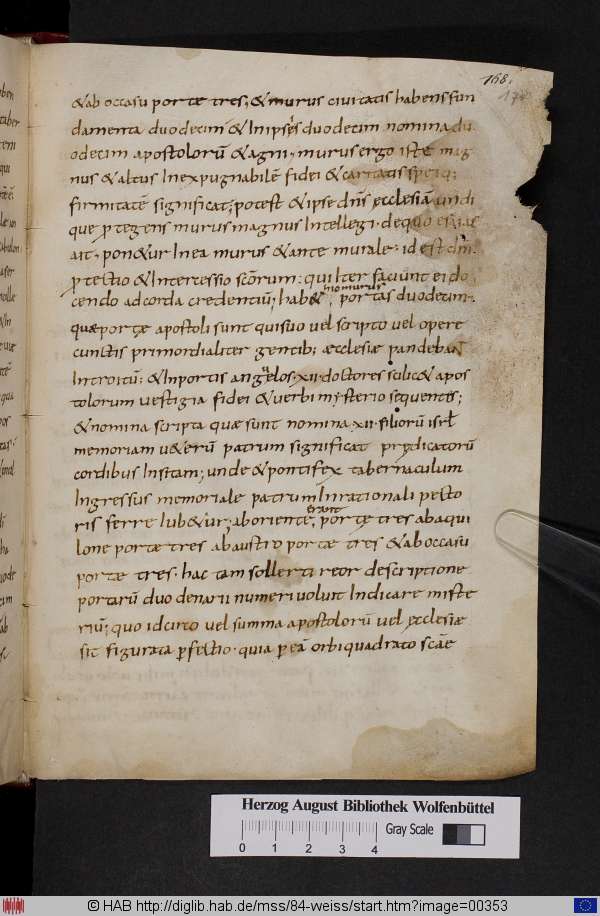 168.
&ab occasu portę tres; & murus ciuitatis habens fun
damenta duodecim & In ipsęs duodecim nomina du
odecim apostolorū & agni. murus ergo iste mag
nus & altus Inexpugnabilē fidei & caritatis speiq;
firmitatē significat; potest & ipse dn̄s ęcclesiā undi
que ꝓtegens murus magnus Intellegi. de quo esaias
ait. pon&ur In ea murus & ante murale. id est dn̄i
ꝓtectio & Intercessio scōrum: qui Iter faciunt ei do
cendo ad corda credentiū; hab& portas duodecim.
quæ portę apostoli sunt qui suo uel scripto uel opere
cunctis primordialiter gentib; æcclesiæ pandebant
Introitū; & In portis angelos .xii. doctores scilic& apos
tolorum uestigia fidei & uerbi mysterio sequentes;
& nomina scripta quæ sunt nomina .xii. filiorū isrł
memoriam u&erū patrum significat prędicatorū
cordibus Insitam; unde & pontifex tabernaculum
Ingressus memoriale patrum In rationali pecto
ris ferre Iub&ur; ab oriente erant portę tres ab aqui
lone portæ tres ab austro portæ tres & ab occasu
portæ tres. hac tam sollerti reor descriptione
portarū duodenarii numeri uoluit Indicare miste
riū; quo idcirco uel summa apostolorū uel ęcclesiæ
sit figurata ꝑfectio. quia ꝑ eā orbi quadrato scāe
Herzog August Bibliothek Wolfenbüttel
0 1 2 3 4
Gray Scale
© HAB http://diglib.hab.de/mss/84-weiss/start.htm?image=00353